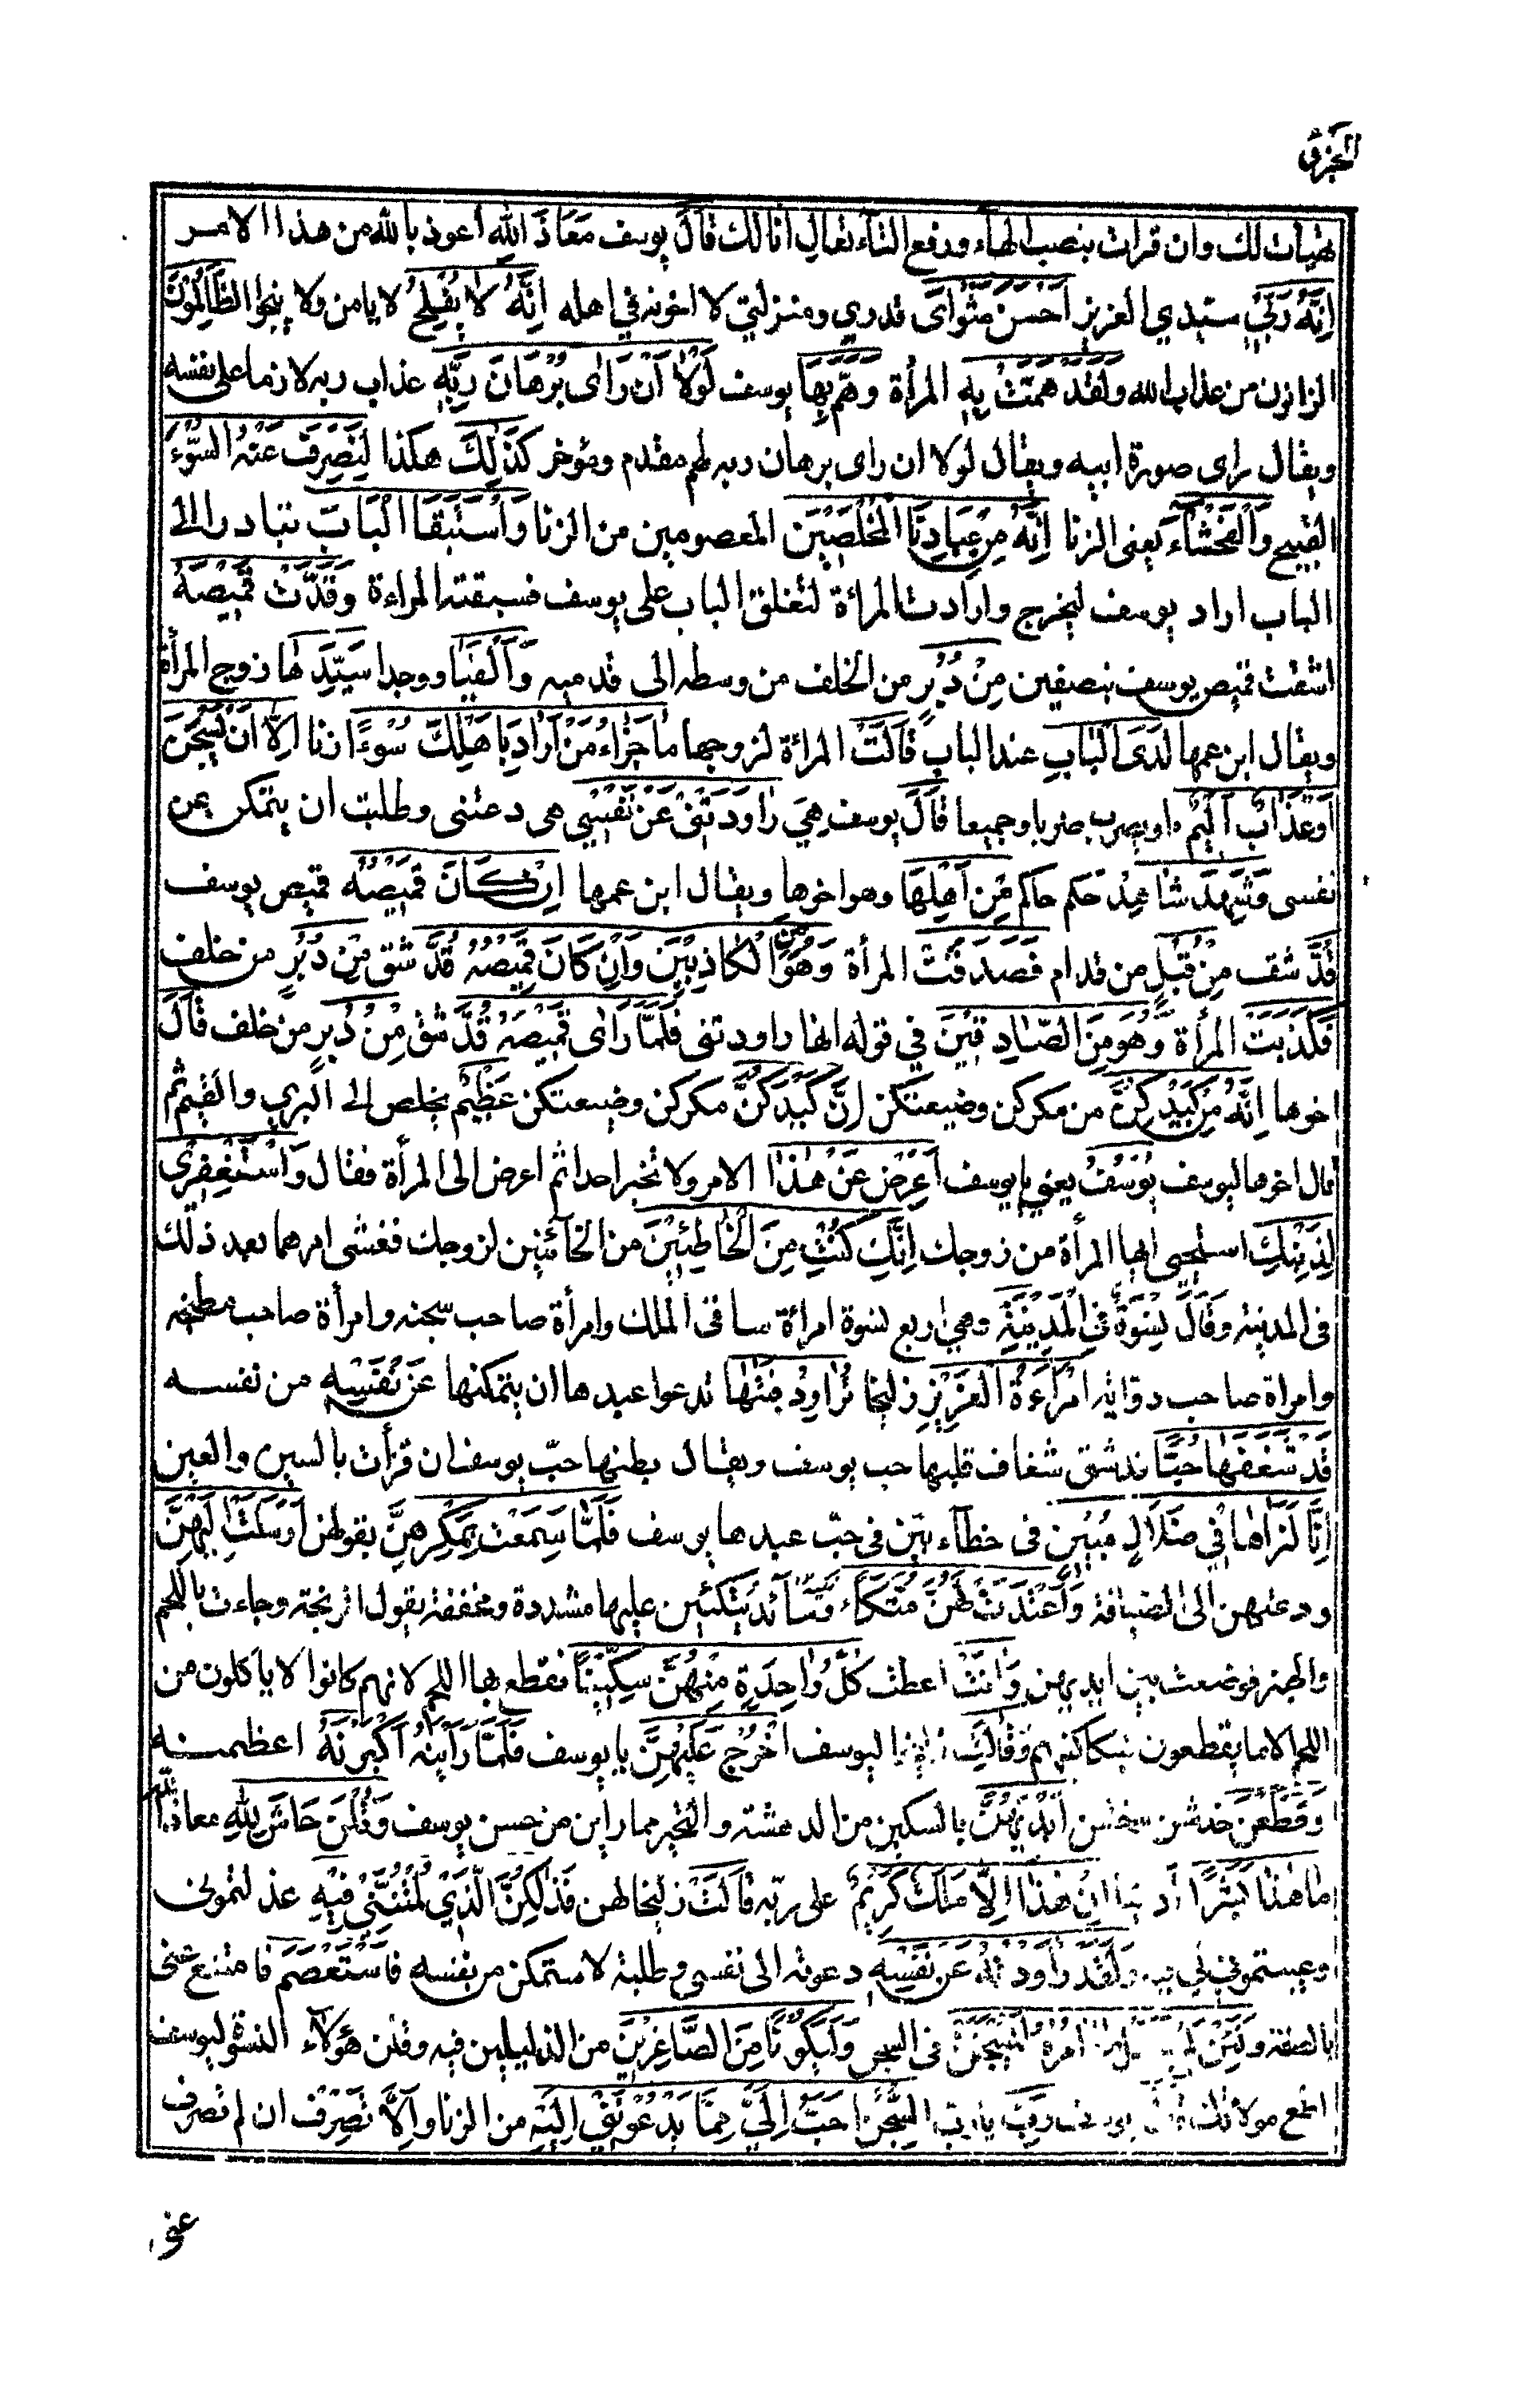 الجزؤ
تهيات لك وان قرات بنصب الهاء ورفع التاء تعال انا لك قَالَ يوسف مَعَاذَ اللهِ اعوذ بالله من هذا الامر
اِنَّهُ رَبِّي سيدي العزيز اَحْسَنَ مَثْوَايَ قدري ومنزلتي لا اخونه في اهله اِنَّهُ لَا يُفْلِحُ لا يامن ولا ينجوا الظَّالِمُونَ
الزانون من عذاب الله وَلَقَدْ هَمَّتْ بِهِ المرأة وَهَمَّ بِهَا يوسف لَوْلَا اَنْ رَاٰى بُرْهَانَ رَبِّهِ عذاب ربه لازما على نفسه
ويقال راى صورة ابيه ويقال لولا ان راى برهان ربه لهم مقدم ومؤخر كَذٰلِكَ هكذا لِنَصْرِفَ عَنْهُ السُّوْءَ
القبيح وَالْفَحْشَآءَ يعنى الزنا اِنَّهُ مِنْ عِبَادِنَا الْمُخْلَصِيْنَ المعصومين من الزنا وَاسْتَبَقَا الْبَابَ تبادرا الى
الباب اراد يوسف ليخرج وارادت المرأة لتغلق الباب على يوسف فسبقته المراءة وَقَدَّتْ قَمِيْصَهُ
اشقت قميص يوسف بنصفين مِنْ دُبُرٍ من الخلف من وسطه الى قدميه وَاَلْفَيَا ووجدا سَيِّدَهَا زوج المرأة
ويقال ابن عمها لَدَى الْبَابِ عند الباب قَالَتْ المرأة لزوجها مَا جَزَاءُ مَنْ اَرَادَ بِاَهْلِكَ سُوْءًا زنا اِلَّا اَنْ يُسْجَنَ
اَوْ عَذَابٌ اَلِيْمٌ او يضرب ضربا وجيعا قَالَ يوسف هِيَ رَاوَدَتْنِيْ عَنْ نَفْسِيْ هى دعتنى وطلبت ان يتمكن من
نفسى وَشَهِدَ شَاهِدٌ حكم حاكم مِنْ اَهْلِهَا وهو اخوها ويقال ابن عمها اِنْ كَانَ قَمِيْصُهُ قميص يوسف
قُدَّ شقف مِنْ قُبُلٍ من قدام فَصَدَقَتْ المرأة وَهُوَ مِنَ الْكَاذِبِيْنَ وَاِنْ كَانَ قَمِيْصُهُ قُدَّ شق مِنْ دُبُرٍ من خلف
فَكَذَبَتْ المرأة وَهُوَ مِنَ الصَّادِقِيْنَ في قوله انها راودتنى فَلَمَّا رَاٰى قَمِيْصَهُ قُدَّ شق مِنْ دُبُرٍ من خلف قَالَ
اخوها اِنَّهُ مِنْ كَيْدِكُنَّ من مكركن وضيعتكن اِنَّ كَيْدَكُنَّ مكركن وضيعتكن عَظِيْمٌ يخلص الى البري والقيم ثم
قال اخوها ليوسف يُوْسُفُ يعني يا يوسف اَعْرِضْ عَنْ هٰذَا الامر ولا تخبر احدا ثم اعرض الى المرأة فقال وَاسْتَغْفِرِيْ
لِذَنْبِكِ استحيى ايها المرأة من زوجك اِنَّكِ كُنْتِ مِنَ الْخَاطِئِيْنَ من الخآئنين لزوجك ففشى امرهما بعد ذلك
فى المدينة وَقَالَ نِسْوَةٌ فِي الْمَدِيْنَةِ وهي اربع نسوة امرأة ساقى الملك وامرأة صاحب سجنه وامرأة صاحب مطبخه
وامراة صاحب دوابه امْرَاَةُ الْعَزِيْزِ زليخا تُرَاوِدُ فَتٰهَا تدعوا عبدها ان يتمكنها عَنْ نَفْسِهِ من نفسه
قَدْ شَغَفَهَا حُبًّا قد شق شغاف قلبها حب يوسف ويقال بطنها حبّ يوسف ان قرأت بالسين والعين
اِنَّا لَنَرَاهَا فِيْ ضَلَالٍ مُبِيْنٍ فى خطآء بيّن فى حبّ عبدها يوسف فَلَمَّا سَمِعَتْ بِمَكْرِهِنَّ بقولهن اَرْسَلَتْ اِلَيْهِنَّ
ودعتهن الى الضيافة وَاَعْتَدَتْ لَهُنَّ مُتَّكَاً وسآئد يتكئين عليها مشددة ومخففة يقول اترنجة وجاءت باللحم
والخبز فوضعت بين ايديهن وَاٰتَتْ اعطت كُلَّ وَاحِدَةٍ مِنْهُنَّ سِكِّيْنًا تقطع بها اللحم لانهم كانوا لا ياكلون من
اللحم الا ما يقطعون بسكاكينهم وَقَالَتْ زليخا ليوسف اخْرُجْ عَلَيْهِنَّ يا يوسف فَلَمَّا رَاَيْنَهُ اَكْبَرْنَهُ اعظمنه
وَقَطَّعْنَ خدشن اَيْدِيَهُنَّ بالسكين من الدهشة والتحير مما راين من حسن يوسف وَقُلْنَ حَاشَ لِلّٰهِ معاذ الله
مَا هٰذَا بَشَرًا اِنْ هٰذَا اِلَّا مَلَكٌ كَرِيْمٌ على ربّه قَالَتْ زليخا لهن فَذٰلِكُنَّ الَّذِيْ لُمْتُنَّنِيْ فِيْهِ عذلتمونى
وعيبتموني وَلَقَدْ رَاوَدْتُّهُ عَنْ نَفْسِهِ دعوته الى نفسى وطلبته لاستمكن من نفسه فَاسْتَعْصَمَ فامتنع عنى
بالعفة وَلَئِنْ لَمْ يَفْعَلْ مَا اٰمُرُهُ لَيُسْجَنَنَّ فى السجن وَلَيَكُوْنًا مِنَ الصَّاغِرِيْنَ من الذليلين فيه وقلن هؤلآء النسوة ليوسف
اطع مولاتك رَبِّ يا رب السِّجْنُ اَحَبُّ اِلَيَّ مِمَّا يَدْعُوْنَنِيْ اِلَيْهِ من الزنا وَاِلَّا تَصْرِفْ ان لم تصرف
عنى